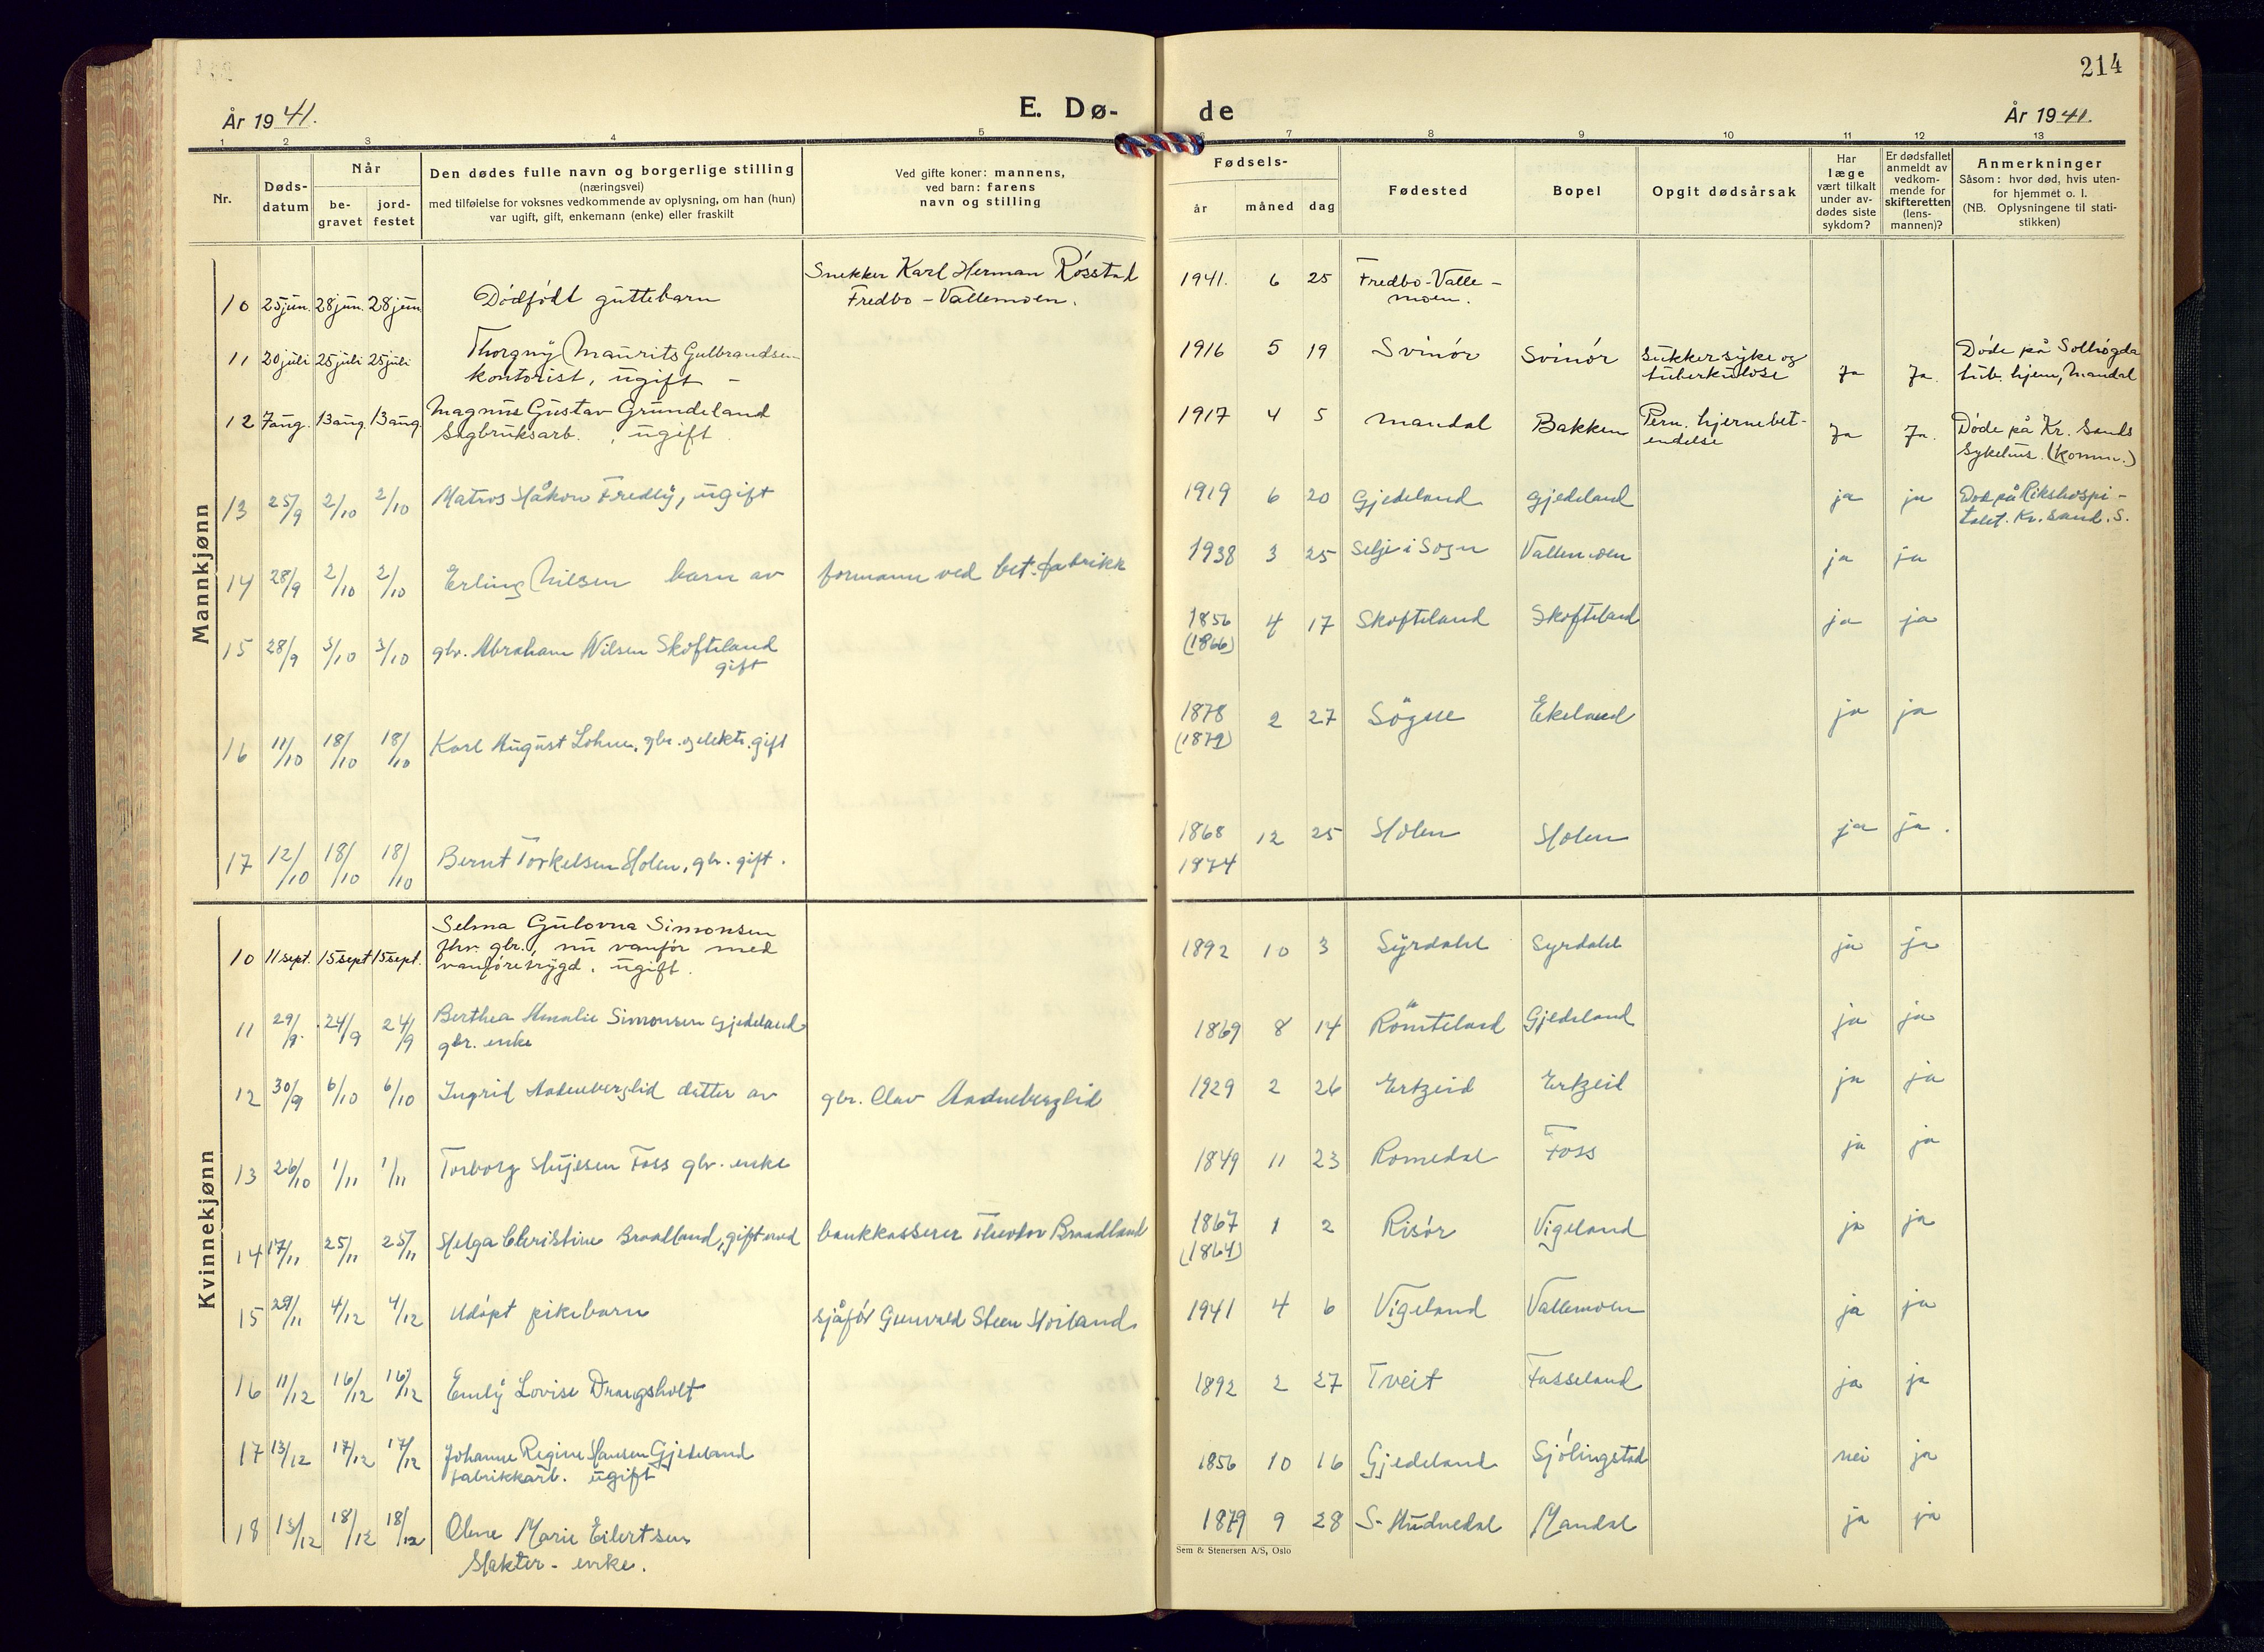 214
År 1941.
E. Dø-
de
År 1941.
1 2 3 4 5 6 7 8 9 10 11 12 13
Nr.
Døds-
datum
Når
be-
gravet
jord-
festet
Den dødes fulle navn og borgerlige stilling
(næringsvei)
med tilføielse for voksnes vedkommende av oplysning, om han (hun)
var ugift, gift, enkemann (enke) eller fraskilt
Ved gifte koner: mannens,
ved barn: farens
navn og stilling
Fødsels-
år måned dag
Fødested
Bopel
Opgit dødsårsak
Har
læge
vært tilkalt
under av-
dødes siste
sykdom?
Er dødsfallet
anmeldt av
vedkom-
mende for
skifteretten
(lens-
mannen)?
Anmerkninger
Såsom: hvor død, hvis uten-
for hjemmet o. l.
(NB. Oplysningene til stati-
stikken)
Mannkjønn
10 25 jun. 28 jun. 28 jun. Dödfödt guttebarn
Snekker Karl Herman Rösstad
Fredbo - Vallemoen.
1941. 6 25 Fredbo-Valle-
moen.
11 20 juli 25 juli 25 juli Thorgny Maurits Gulbrandsen
kontorist, ugift -
1916 5 19 Svinör Svinör Sukkersyke og
tuberkulose Ja Ja.
Döde på Solhögda
tub. hjem, Mandal
12 7 aug. 13 aug. 13 aug. Magnus Gustav Grundeland
Sagbruksarb. , ugift.
1917 4 5 Mandal Bakken Pern. hjernebet-
endelse Ja Ja.
Döde på Kr. Sands
Sykehus. (Komm.)
13 25/9 2/10 2/10 Matros Håkon Fredly, ugift
1919 6 20 Gjedeland Gjedeland ja ja
Död på Rikshospi-
talet. Kr. sand. S.
14 28/9 2/10 2/10 Erling Nilsen barn av formann ved bet. fabrikk
1938 3 25 Selje i Sogn Vallemoen ja ja
15 28/9 3/10 3/10 gbr. Abraham Nilsen Skofteland
gift
1856 4 17 Skofteland Skofteland ja ja
(1866)
16 11/10 18/10 18/10 Karl August Lohne, gbr. og elektr. gift
1878 2 27 Sögne Ekeland ja ja
(1879)
17 12/10 18/10 18/10 Bernt Torkelsen Holen, gbr. gift.
1868 12 25 Holen Holen ja ja.
1874
Kvinnekjønn
10 11 sept. 15 sept 15 sept. Selma Gulovna Simonsen
fhv. gbr., nu vanför med
vanföretrygd. ugift.
1892 10 3 Syrdahl Syrdahl ja ja
11 29/9. 24/9 24/9 Berthea Amalie Simonsen Gjedeland
gbr. enke
1869 8 14 Römteland Gjedeland ja ja
12 30/9 6/10 6/10 Ingrid Aadneberglid datter av gbr. Olav Aadneberglid
1929 2 26 Ertzeid Ertzeid ja ja
13 26/10 1/11 1/11 Torborg Foss gbr. enke
1849 11 23 Romedal Foss ja ja
14 17/11 25/11 25/11 Helga Christine Braadland, gift med bankkasserer Theodor Braadland
1867 1 2 Risör Vigeland ja ja
(1864)
15 29/11 4/12 4/12 Udöpt pikebarn sjåför Gunvald Steen Höiland
1941 4 6 Vigeland Vallemoen ja ja
16 11/12 16/12 16/12 Emly Lovise Drangsholt
1892 2 27 Tveit Fasseland ja ja
17 13/12 17/12 17/12 Johanne Regine Hansen Gjedeland
fabrikkarb. ugift
1856 10 16 Gjedeland Sjölingstad nei ja
18 13/12 18/12 18/12 Oline Marie Eilertsen
Slakter - enke.
1879 9 28 S. Audnedal Mandal ja ja
Sem & Stenersen A/S, Oslo